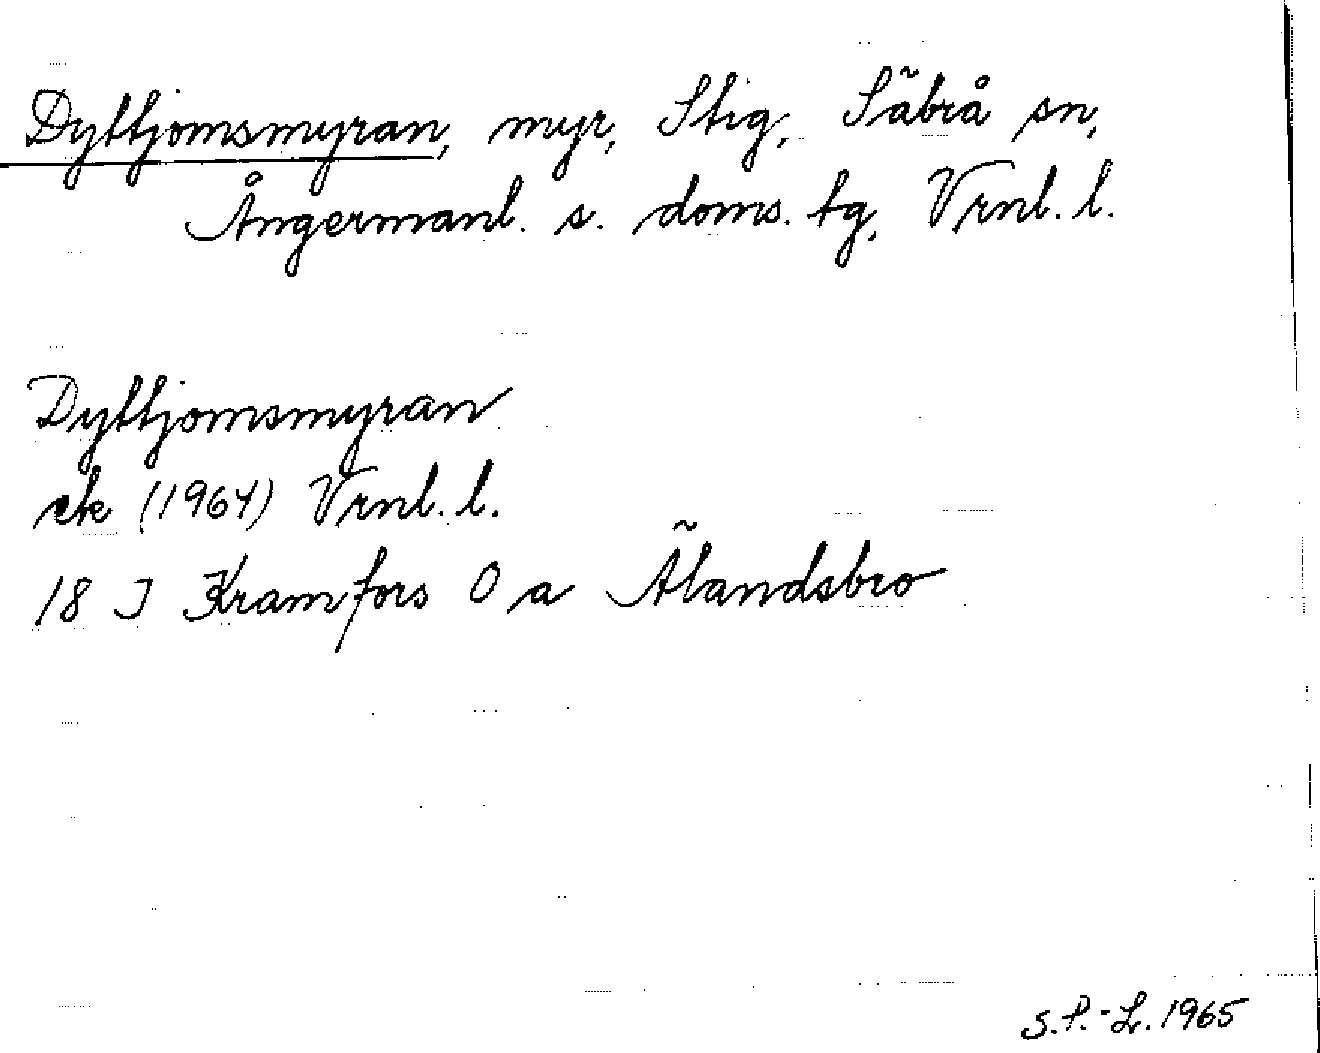 Dyttjomsmyran, myr, Stig, Säbrå sn,
Ångermanl. s. doms. tg, Vrnl. l.
Dyttjomsmyran
ek (1964) Vrnl. l.
18 I Kramfors O a Älandsbro
S.P.-L. 1965